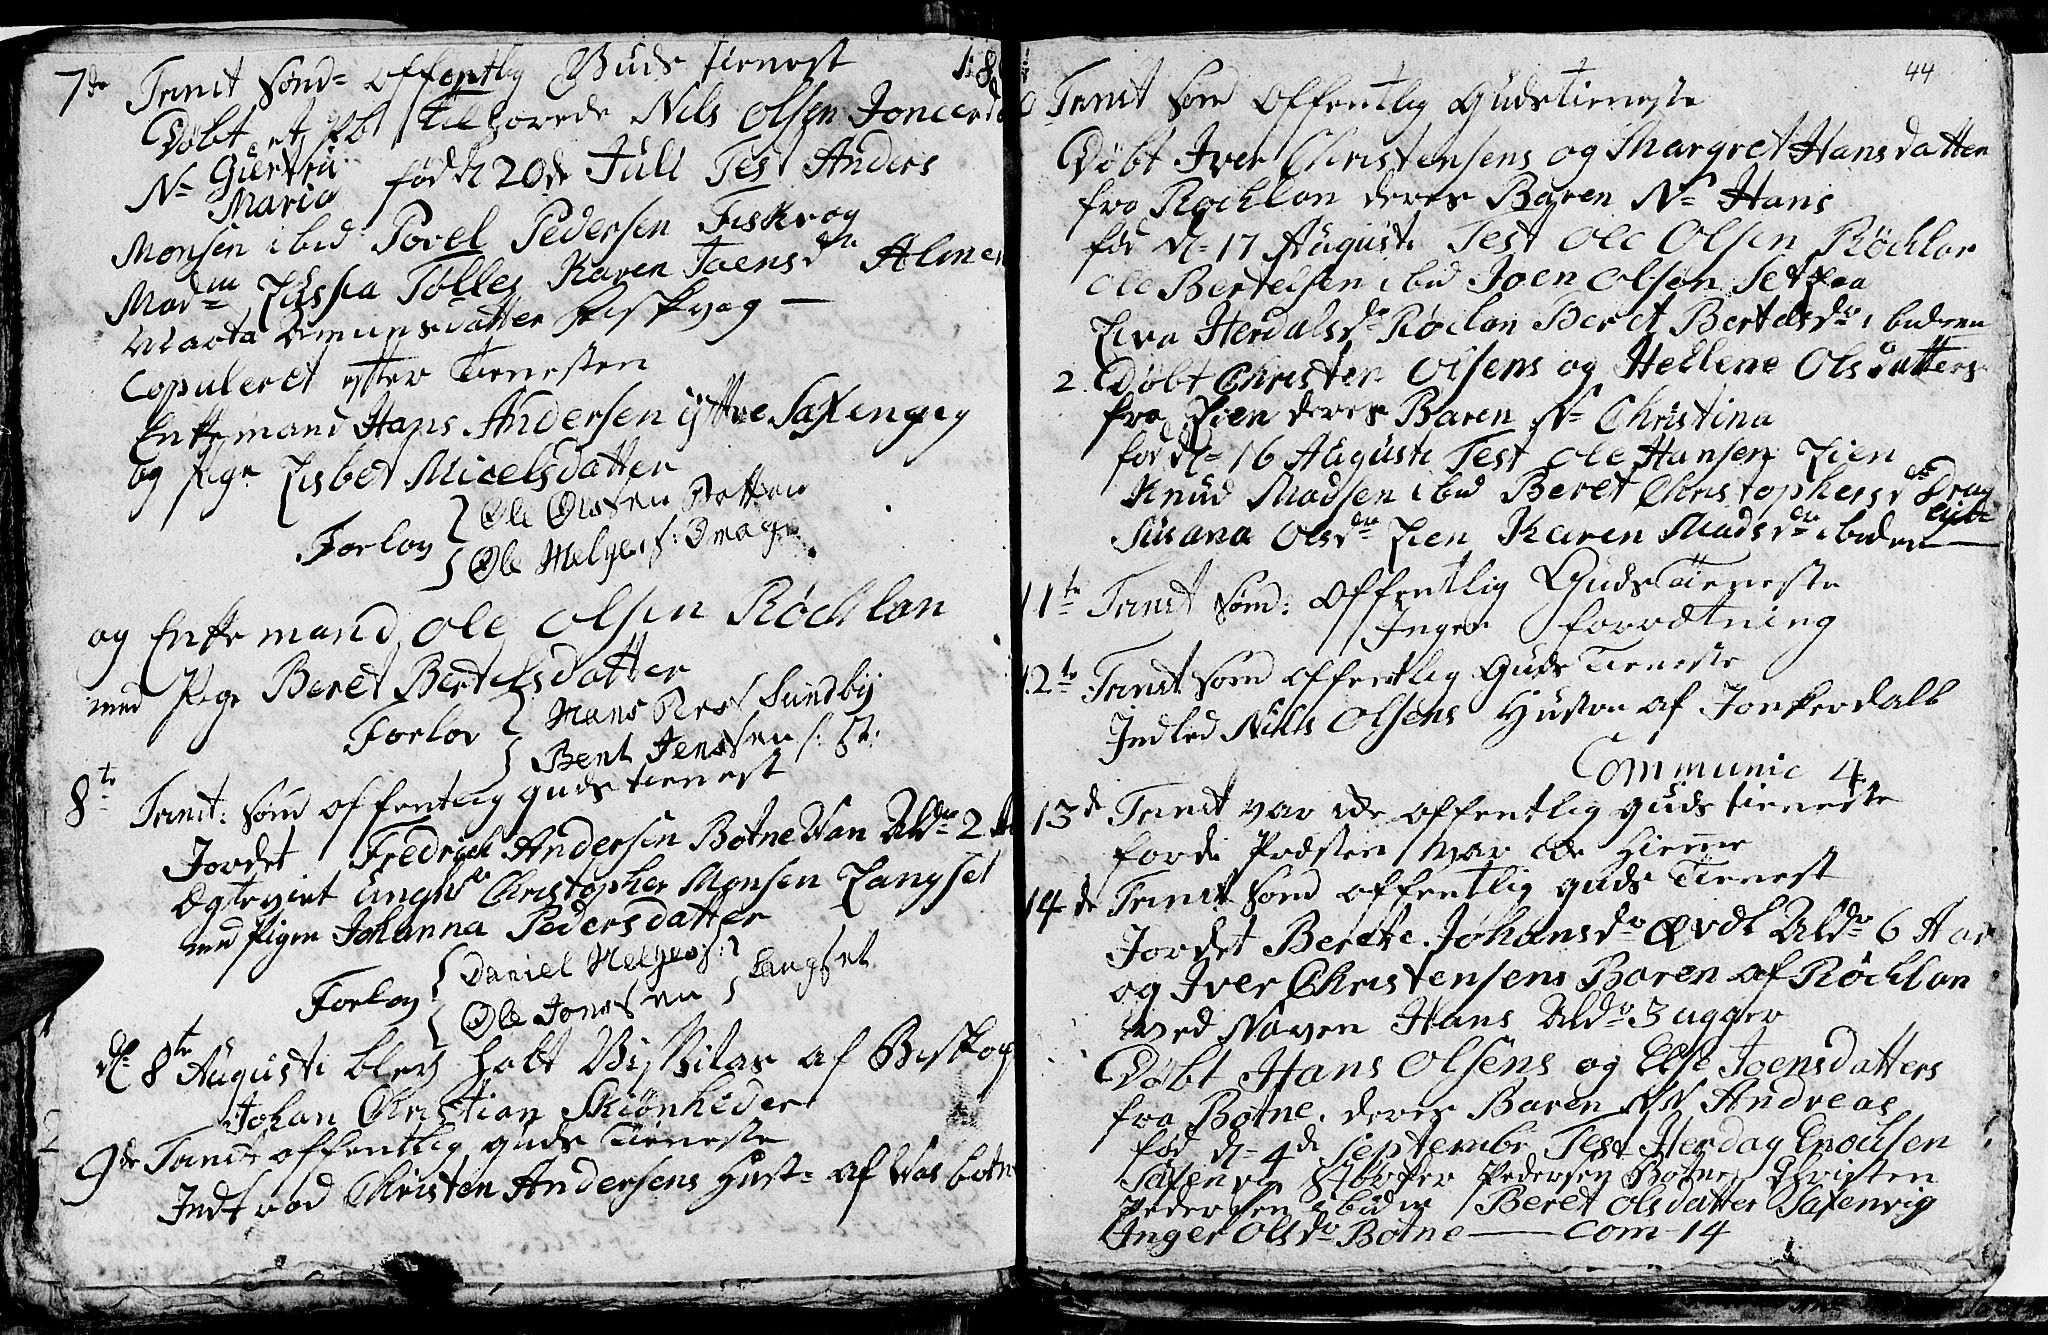 7de Trinit Sønd= offentlig Guds tienest
Døbt et Pb tilhørede Nils Olsen Joncerda
N= Giertru Maria fød d 20de Juli Test Anders
Monsen ibid Povel Pedersen Fiskvog
Mad= Zissia Tølles Karen Joensdr
Marta Amunsdatter Fiskvag —
Copuleret efter Tienesten
Enkemand Hans Andersen ÿttre Saxenvig
og Pige Lisbet Micelsdatter
Forlov { Ole Olssen Botten
Ole Helges:
og Enkemand Ole Olsen Röcklan
med Pige Beret Bertelsdatter
Forlov { Hans Sundby
Bent Jenssen
8te Trinit: Sønd offentlig guds tienest
Jordet Fredrich Andersen Botne Ald= 2
Egteviet Ungk Christopher Monsen Langset
med Pigen Johanna Pedersdatter
Forlov { Daniel Helges:
Ole Jonssen } Langset
d= 8te Augusti blev holt Visitas af Biskop
Johan Christian Skiønheder
9de Trinit offentlig guds Tieneste
Indt Christen Andersens Hust= af
44
Trinit Sønd Offentlig Gudstieneste
Døbt Iver Christensens og Margret Hansdatter
fra Røcklan deres Baren N= Hans
fød d= 17 Augusti Test Ole Olsen Röcklan
Ole Bertelsen ibid Joen Olsen Setsaa
Eva Herdalsdr Røclan Beret Bertelsdr ibidem
2. Døbt Christen Olsens og Hellene Olsdatters
fra Lien deres Baren N= Christina
fød d= 16 Augusti Test Ole Hansen Lien
Knud Madsen ibid Beret Christophersdr Drag
Susana Olsdtr Lien Karen Madsdtr ibidem
11te Trinit Sønd: Offentlig Guds Tieneste
Ingen forrætning
12te Trinit Sønd offentlig Guds Tieneste
Indled Niels Olsens Hustrue af Jonkerdall
Communic 4
13de Trinit var ide offentlig guds tieneste
fordi Præsten var ide hieme
14de Trinit Sønd offentlig guds Tienest
Jordet Berete Johansdr Ald= 6 Aar
og Iver Christensens Baren af Röcklan
ved Naven Hans Ald= 3 ugger
Døbt Hans Olsens og Else Joensdatters
fra Botne deres Baren N Andreas
fød d= 4de September Test Herdag Enochsen
Saxenvig Pedersen Botne Christen
Pedersen ibidm Beret Olsdatter Saxenvig
Inger Olsdr Botne — Com 14